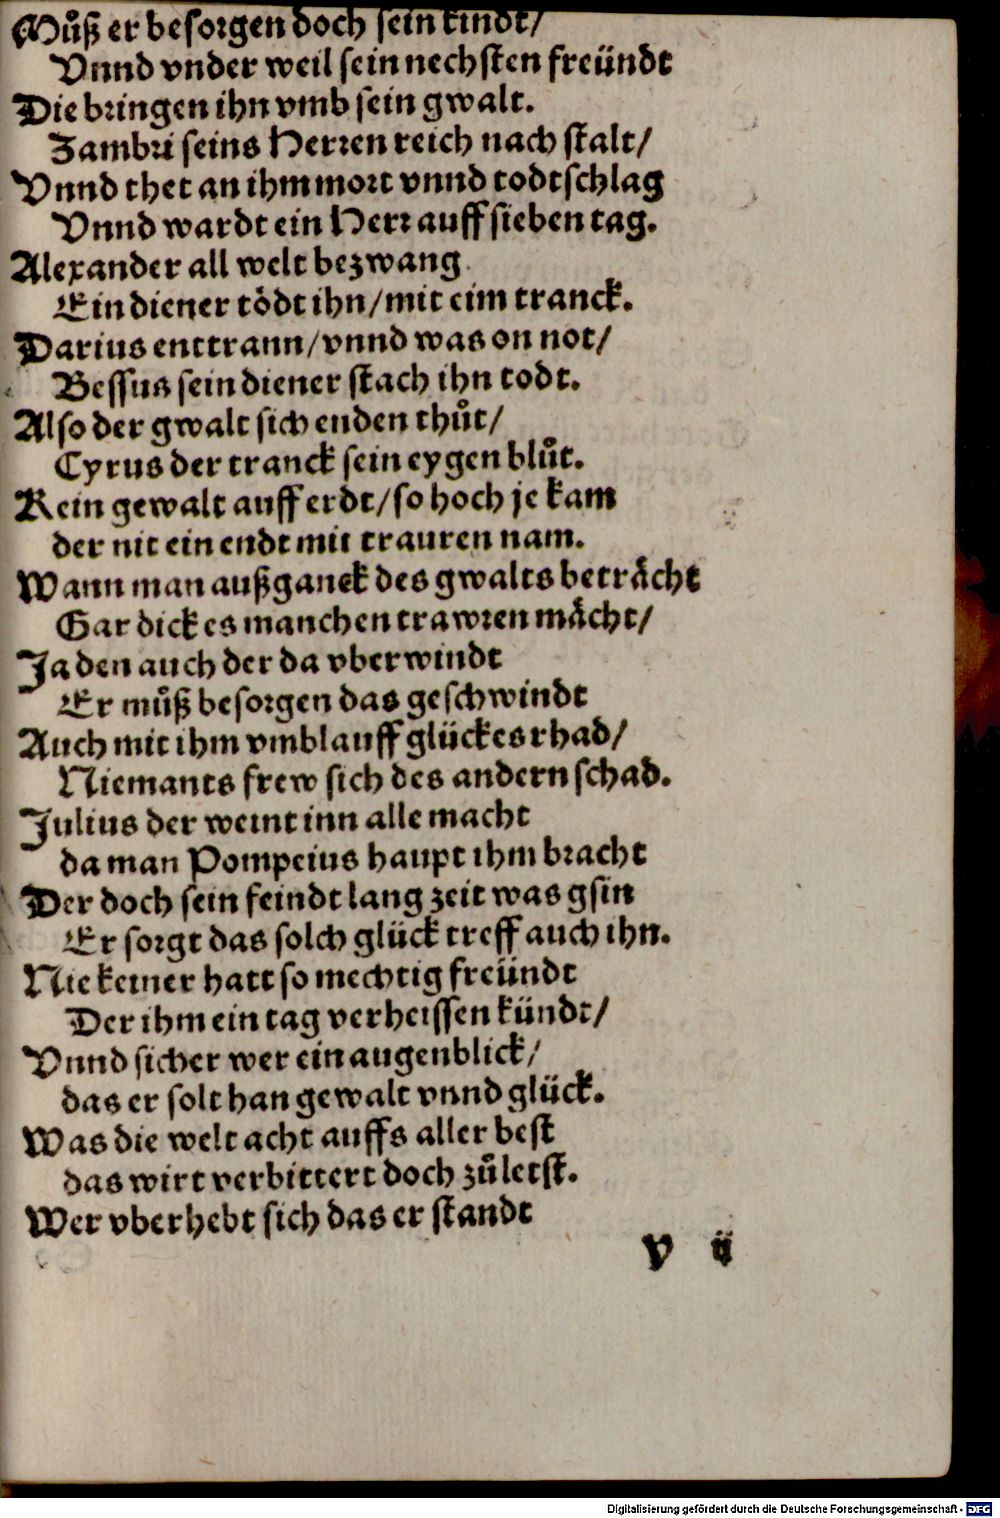 Můß er besorgen doch sein kindt/
Vnnd vnder weil sein nechsten freündt
Die bringen ihn vmb sein gwalt.
Zambri seins Herren reich nach stalt/
Vnnd thet an ihm mort vnnd todtschlag
Vnnd wardt ein Herr auff sieben tag.
Alexander all welt bezwang
Ein diener tödt ihn/mit eim tranck.
Darius enttrann/vnnd was on not/
Bessus sein diener stach ihn todt.
Also der gwalt sich enden thůt/
Cyrus der tranck sein eygen blůt.
Kein gewalt auff erdt/so hoch je kam
der nit ein endt mit trauren nam.
Wann man außganck des gwalts beträcht
Gar dick es manchen trawren mächt/
Ja den auch der da vberwindt
Er můß besorgen das geschwindt
Auch mit ihm vmblauff glückes rhad/
Niemants frew sich des andern schad.
Julius der weint inn alle macht
da man Pompeius haupt ihm bracht
Der doch sein feindt lang zeit was gsin
Er sorgt das solch glück treff auch ihn.
Nie keiner hatt so mechtig freündt
Der ihm ein tag verheissen kündt/
Vnnd sicher wer ein augenblick/
das er solt han gewalt vnnd glück.
Was die welt acht auffs aller best
das wirt verbittert doch zůletst.
Wer vberhebt sich das er standt
V ij
Digitalisierung gefördert durch die Deutsche Forschungsgemeinschaft - DFG